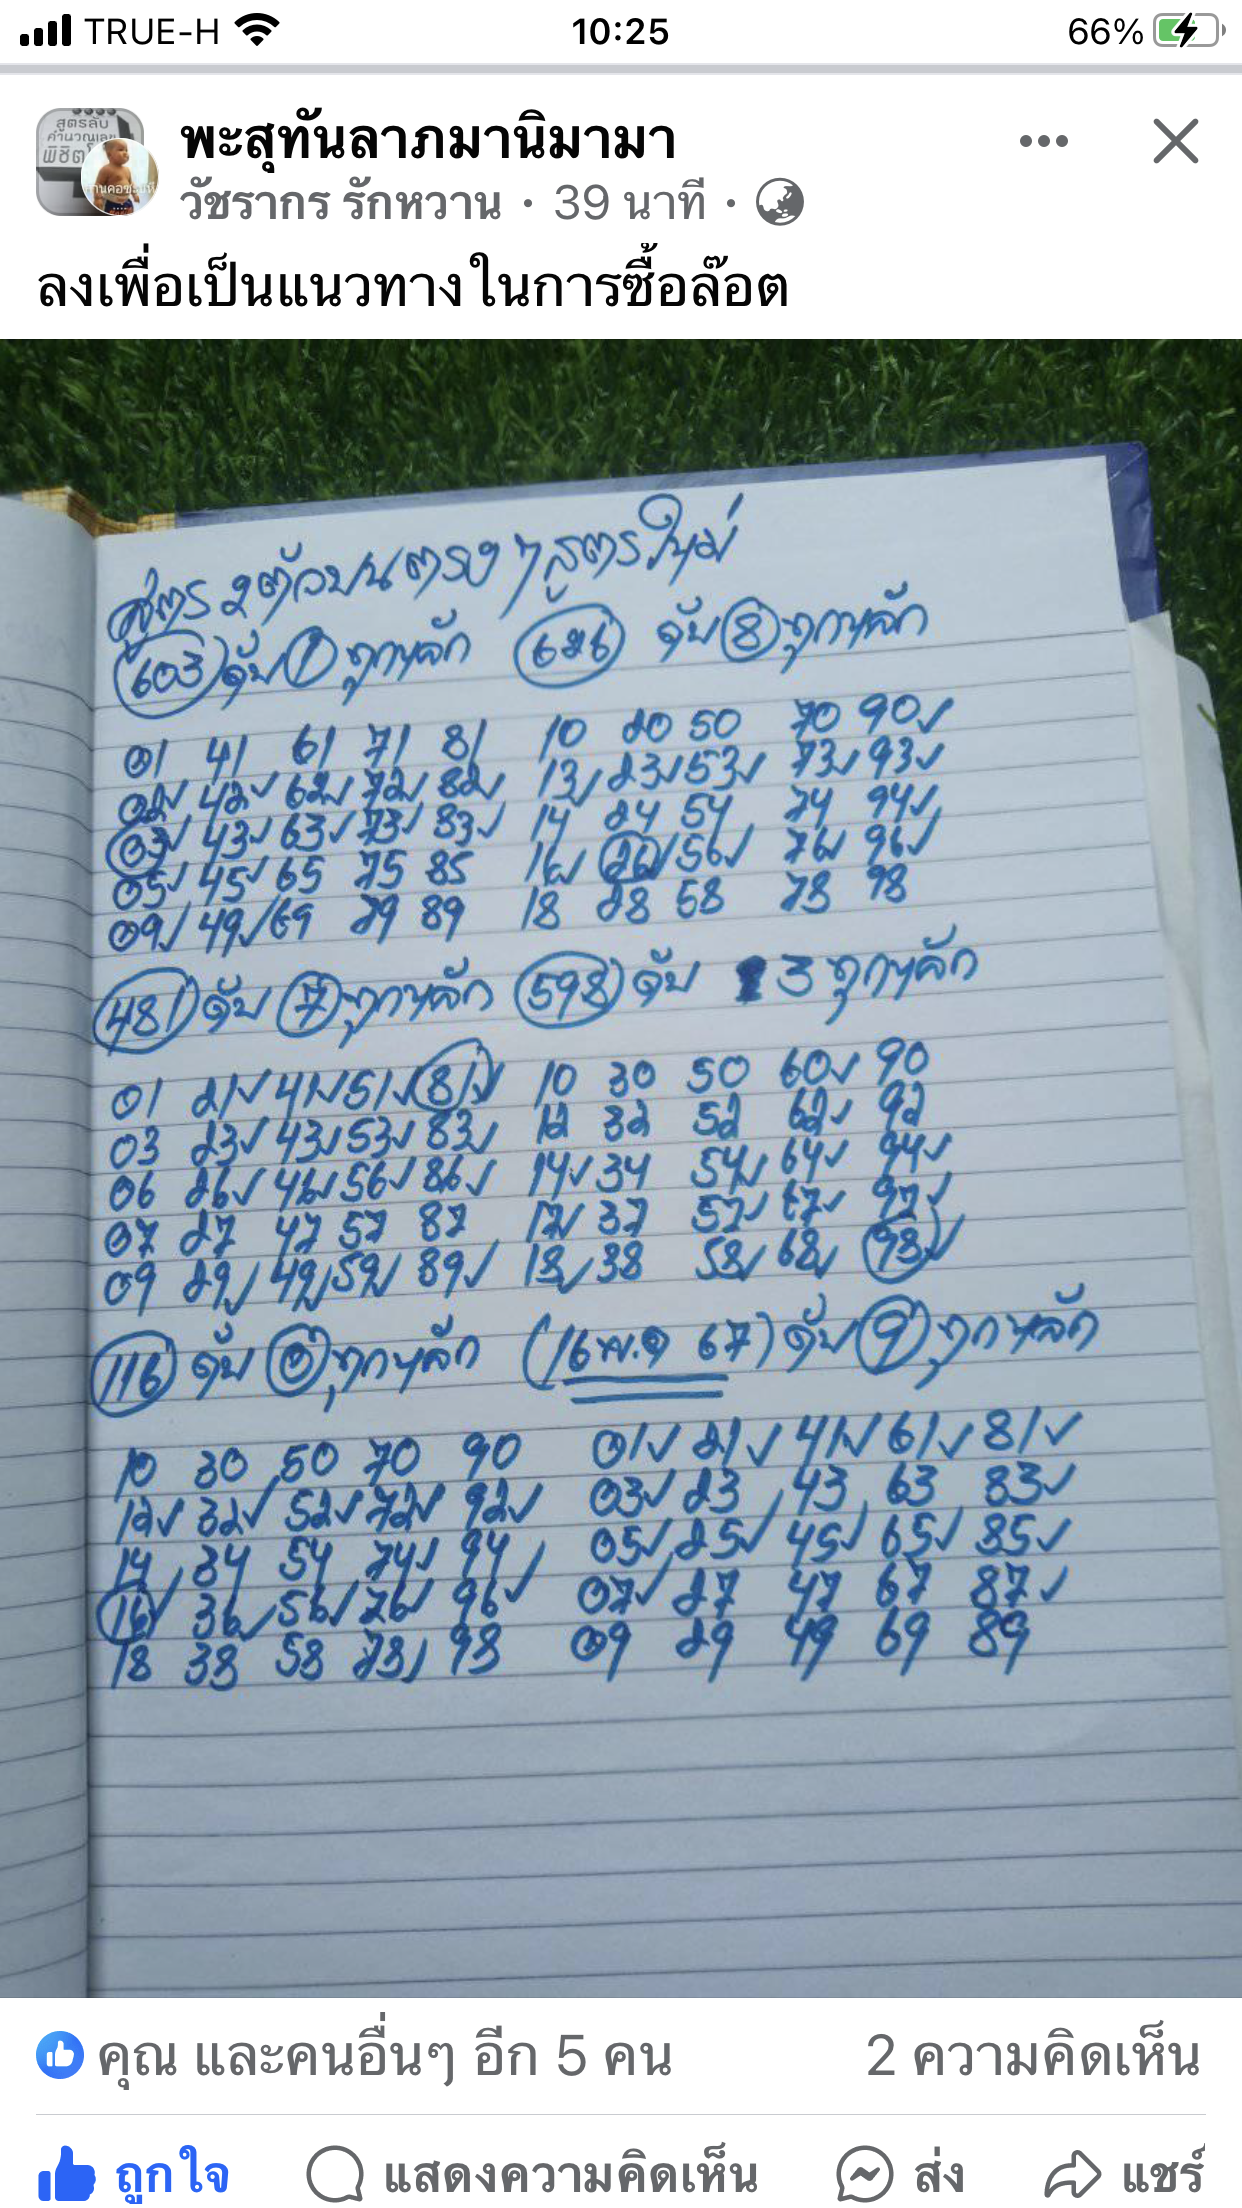 TRUE-H 10:25 66%
สูตรลับ
คำนวณเลข
พิชิต
พะสุทันลาภมานิมามา
วัชรากร รักหวาน · 39 นาที ·
ลงเพื่อเป็นแนวทางในการซื้อล๊อต
สูตร 2ตัวบนตรงๆ สูตรใหม่
603 ดับ 1 ทุกหลัก 626 ดับ 8 ทุกหลัก
01 41 61 71 81 10 20 50 70 90✓
02✓ 42✓ 62✓ 72✓ 82✓ 13✓ 23✓ 53✓ 73✓ 93✓
03✓ 43✓ 63✓ 73✓ 83✓ 14 24 54 74 94✓
05✓ 45✓ 65 75 85 16✓ 26✓ 56✓ 76✓ 96✓
09✓ 49✓ 69 79 89 18 28 58 78 98
481 ดับ 7 ทุกหลัก 598 ดับ 3 ทุกหลัก
01 21✓ 41✓ 51✓ 81✓ 10 30 50 60✓ 90
03 23✓ 43✓ 53✓ 83✓ 12 32 52 62✓ 92
06 26✓ 46✓ 56✓ 86✓ 14✓ 34 54✓ 64✓ 94✓
07 27 47 57 87 17✓ 37 57✓ 67✓ 97✓
09 29✓ 49✓ 59✓ 89✓ 18✓ 38 58✓ 68✓ 98✓
116 ดับ 0 ทุกหลัก (16 พ.ค 67) ดับ 9 ทุกหลัก
10 30 50 70 90 01✓ 21✓ 41✓ 61✓ 81✓
12✓ 32✓ 52✓ 72✓ 92✓ 03✓ 23 43 63 83✓
14 34 54 74✓ 94✓ 05✓ 25✓ 45✓ 65✓ 85✓
16✓ 36✓ 56✓ 76✓ 96✓ 07✓ 27 47 67 87✓
18 38 58 78✓ 98 09 29 49 69 89
คุณ และคนอื่นๆ อีก 5 คน 2 ความคิดเห็น
ถูกใจ แสดงความคิดเห็น ส่ง แชร์